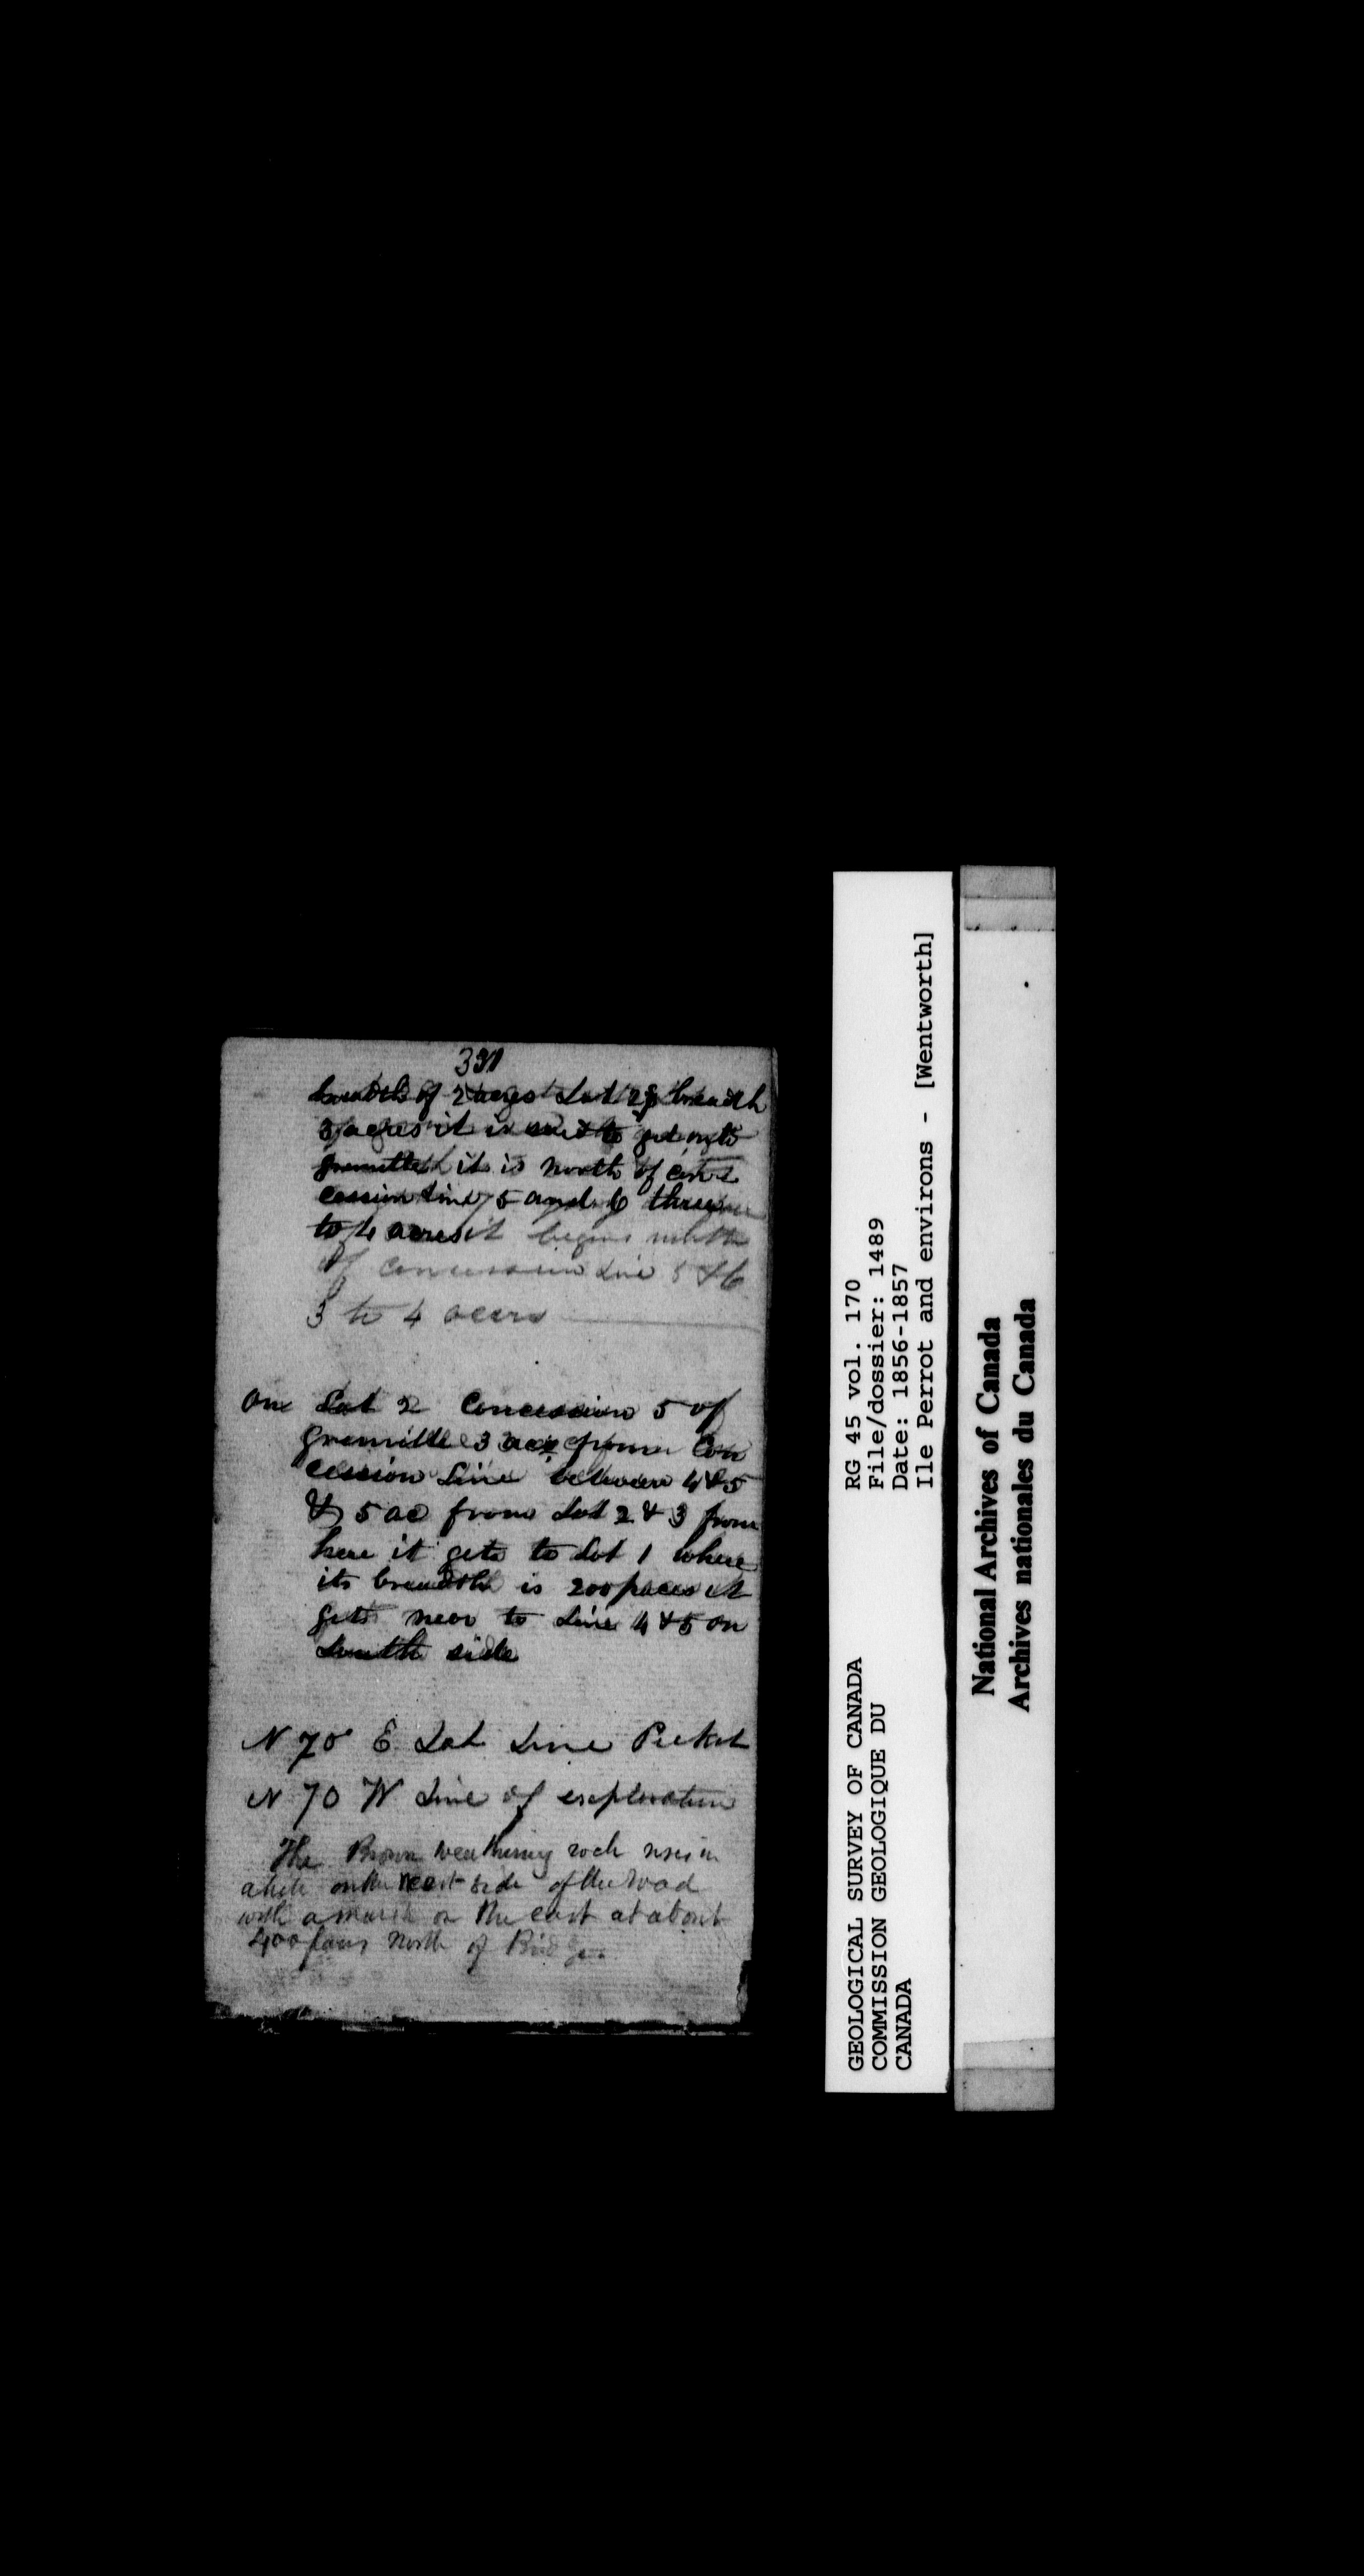 331
breadth of 2 acres Lot 2 breadth
3 acres it is said to get onto
Grenville it is north of con
cession Line 5 and 6 three
to 4 acres it begins north
of concession Line 5 & 6
3 to 4 acers
On Lot 2 Concession 5 of
Grenville 3 ace from Con
cession Line between 4 & 5
& 5 ac from Lot 2 & 3 from
here it gets to Lot 1 where
its breadth is 200 paces it
gets near to Line 4 & 5 on
South side
N 70 E Lot Line Picket
N 70 W Line of exploration
The Brown weathering rock rises in
on the west side of the road
with a marsh on the east at about
400 paces North of Bridge
RG 45 vol. 170
File/dossier: 1489
Date: 1856-1857
Ile Perrot and environs - [Wentworth]
GEOLOGICAL SURVEY OF CANADA
COMMISSION GEOLOGIQUE DU
CANADA
National Archives of Canada
Archives nationales du Canada